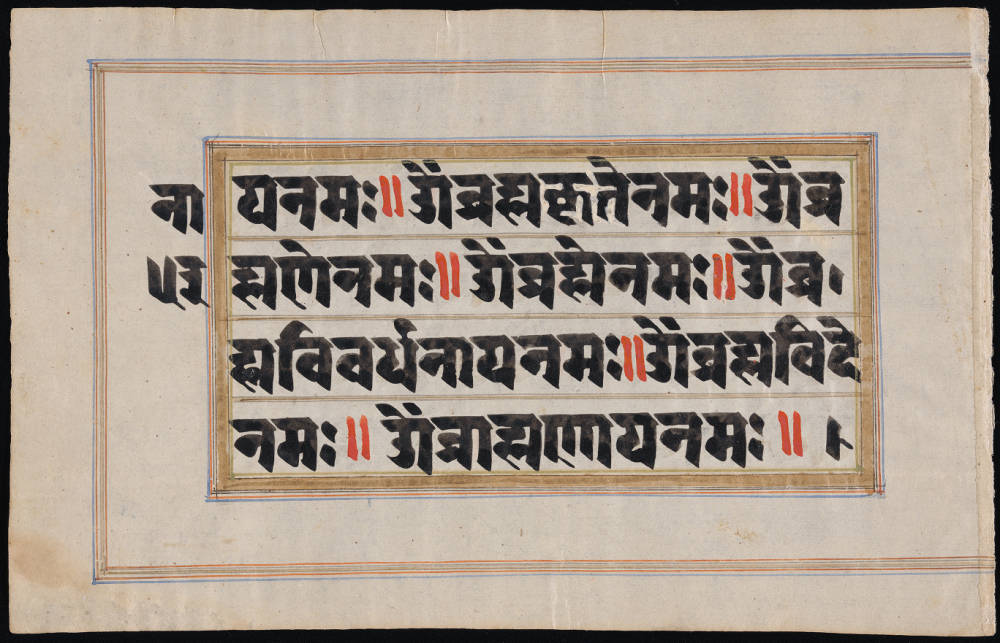 ना यनमः॥ॐब्रह्मकृतेनमः॥ॐब्र
ह्मणेनमः॥ॐब्रह्मेनमः॥ॐब्र
ह्मविवर्धनायनमः॥ॐब्रह्मविदे
नमः॥ॐब्राह्मणायनमः॥